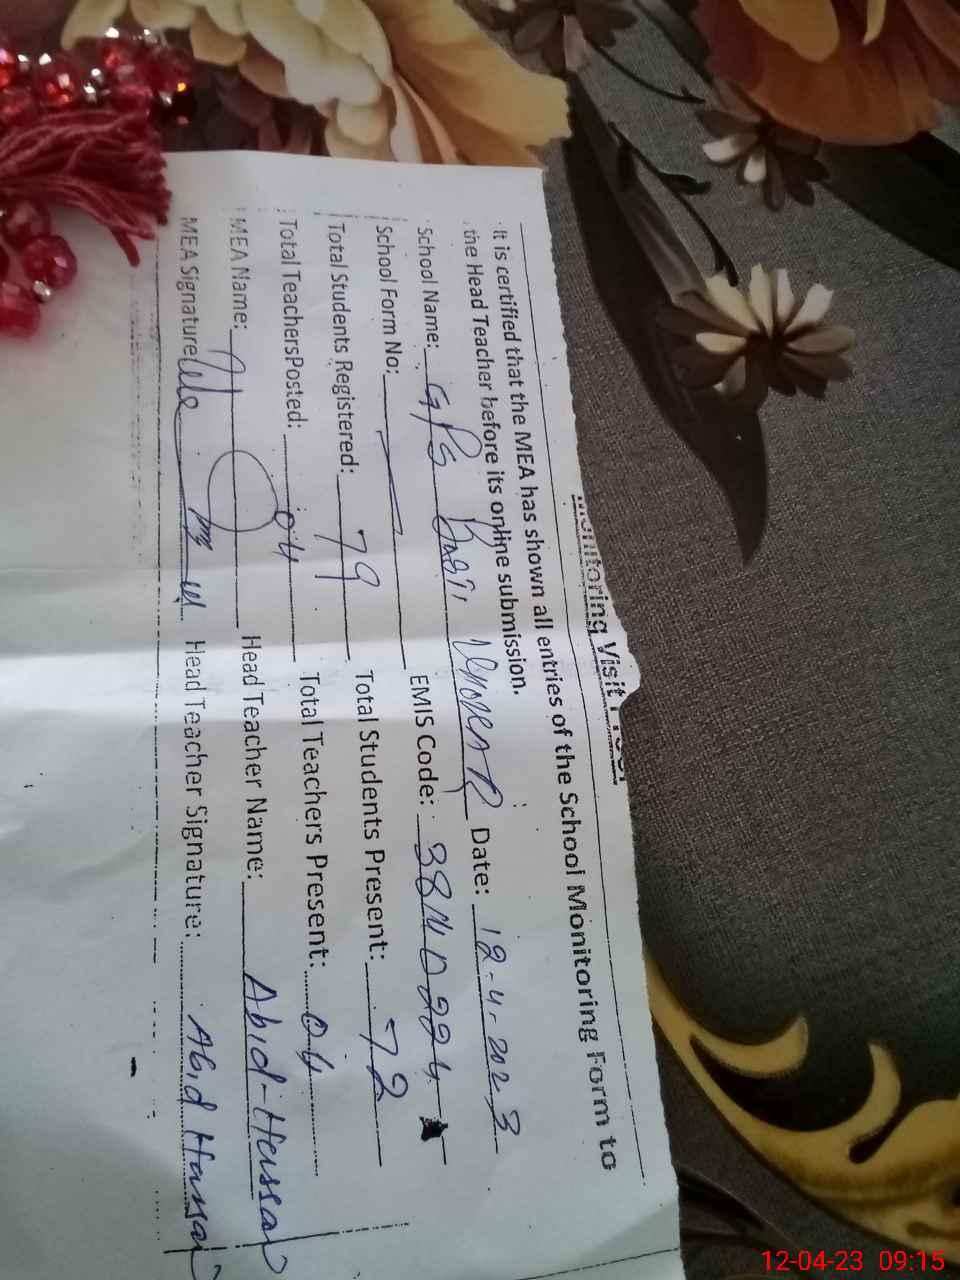 Monitoring Visit Proof
It is certified that the MEA has shown all entries of the School Monitoring Form to
the Head Teacher before its online submission.
School Name: GPS Date: 12-4-2023
School Form No: EMIS Code:
Total Students Registered: 79 Total Students Present: 72
Total TeachersPosted: 04 Total Teachers Present: 04
MEA Name: Head Teacher Name: Abid-Hassan
MEA Signature Head Teacher Signature: Abid Hassan
12-04-23 09:15